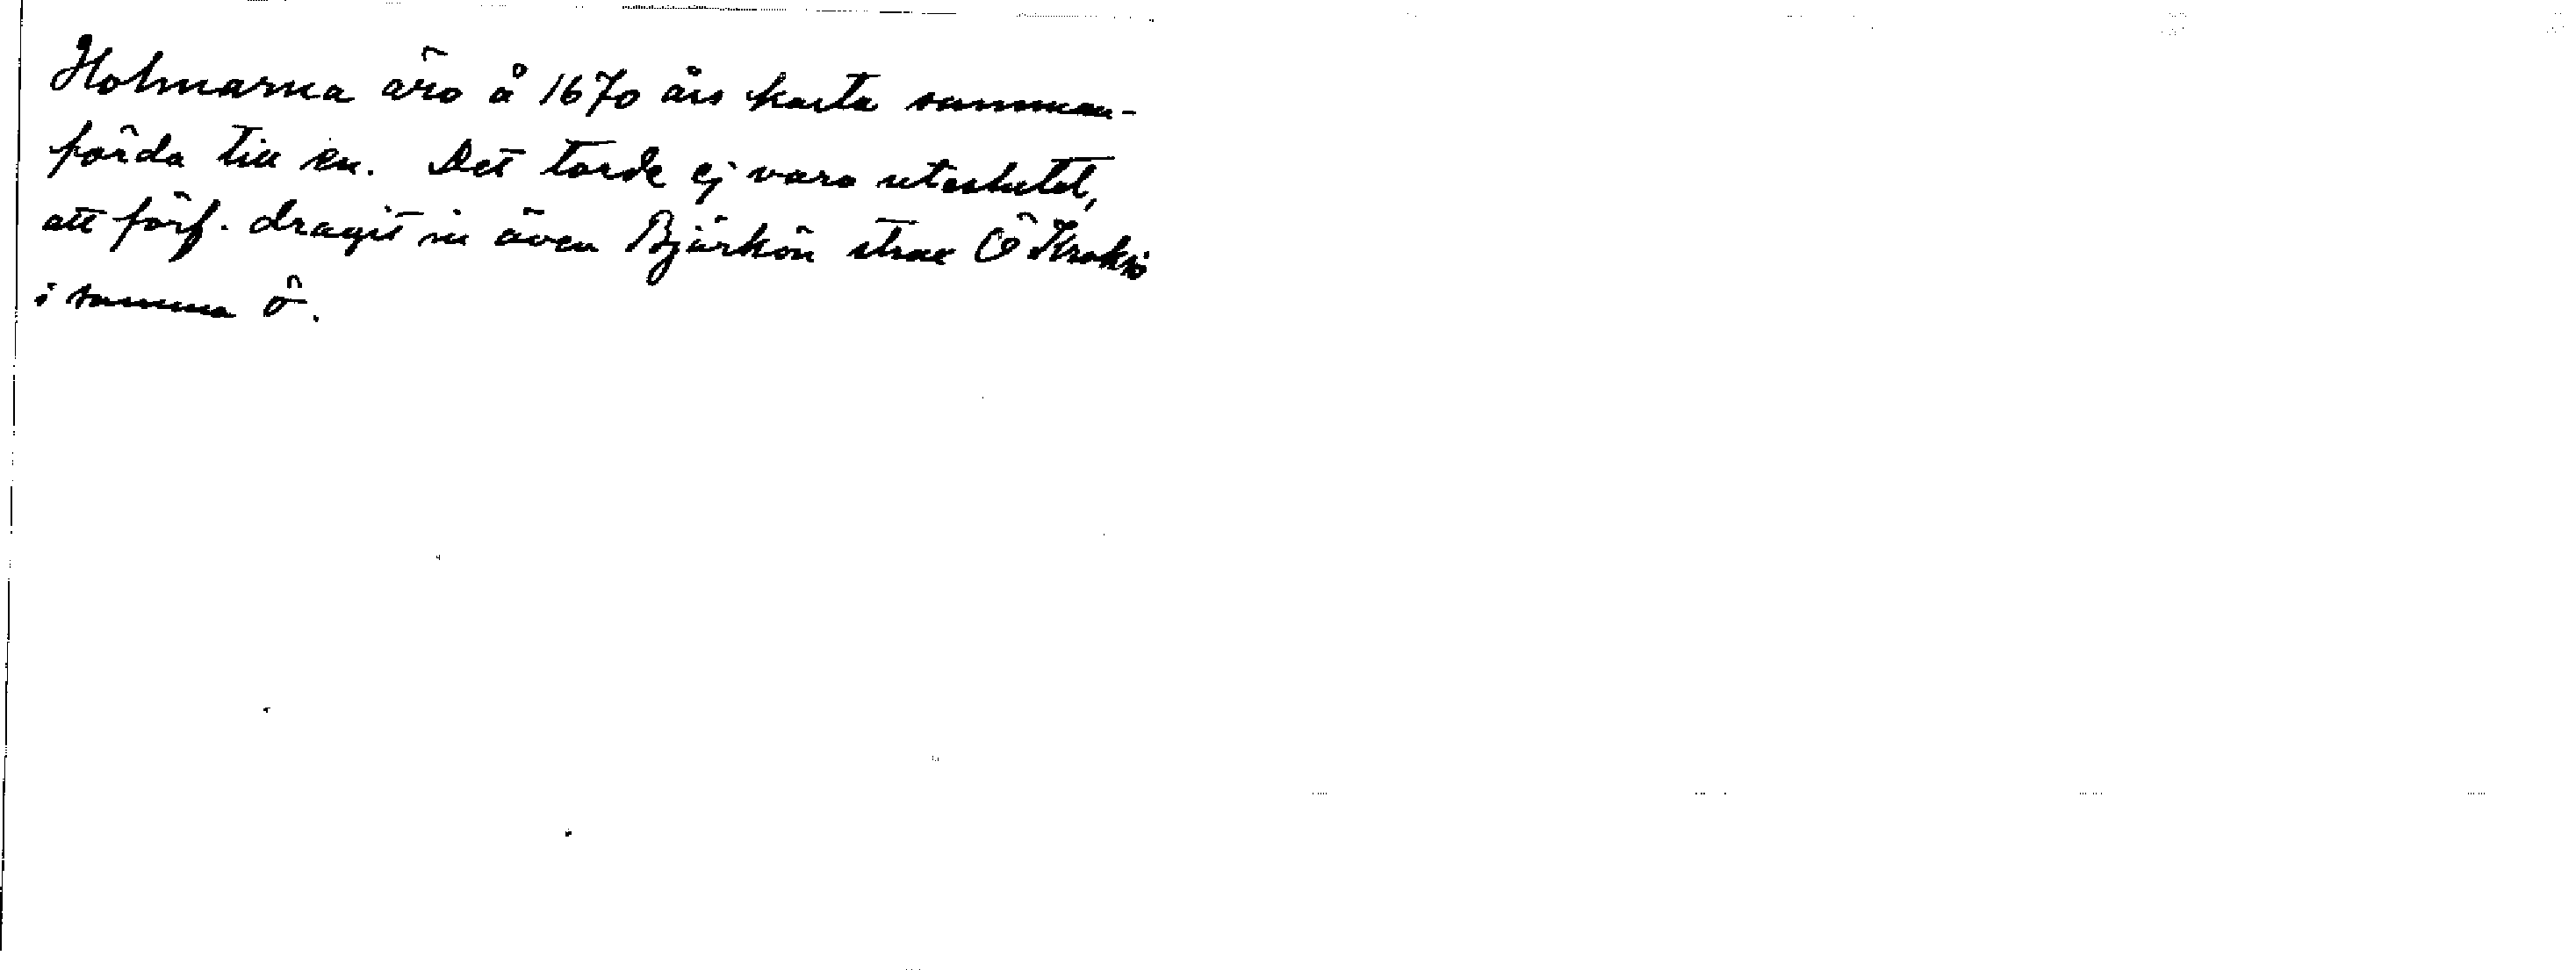 Holmarna äro å 1670 års karta samman-
förda till en. Det torde ej vara uteslutet,
att förf. dragit in även Björkön strax Ö Kroksö
i samma ö.